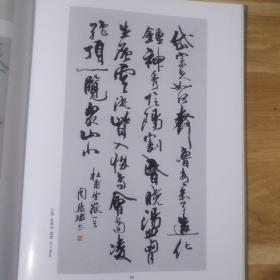 岱宗夫如何齊魯青未了造化
鍾神秀陰陽割昏曉盪胷
生層雲決眥入歸鳥會當凌
絕頂一覽衆山小
杜甫望嶽
周慧珺書